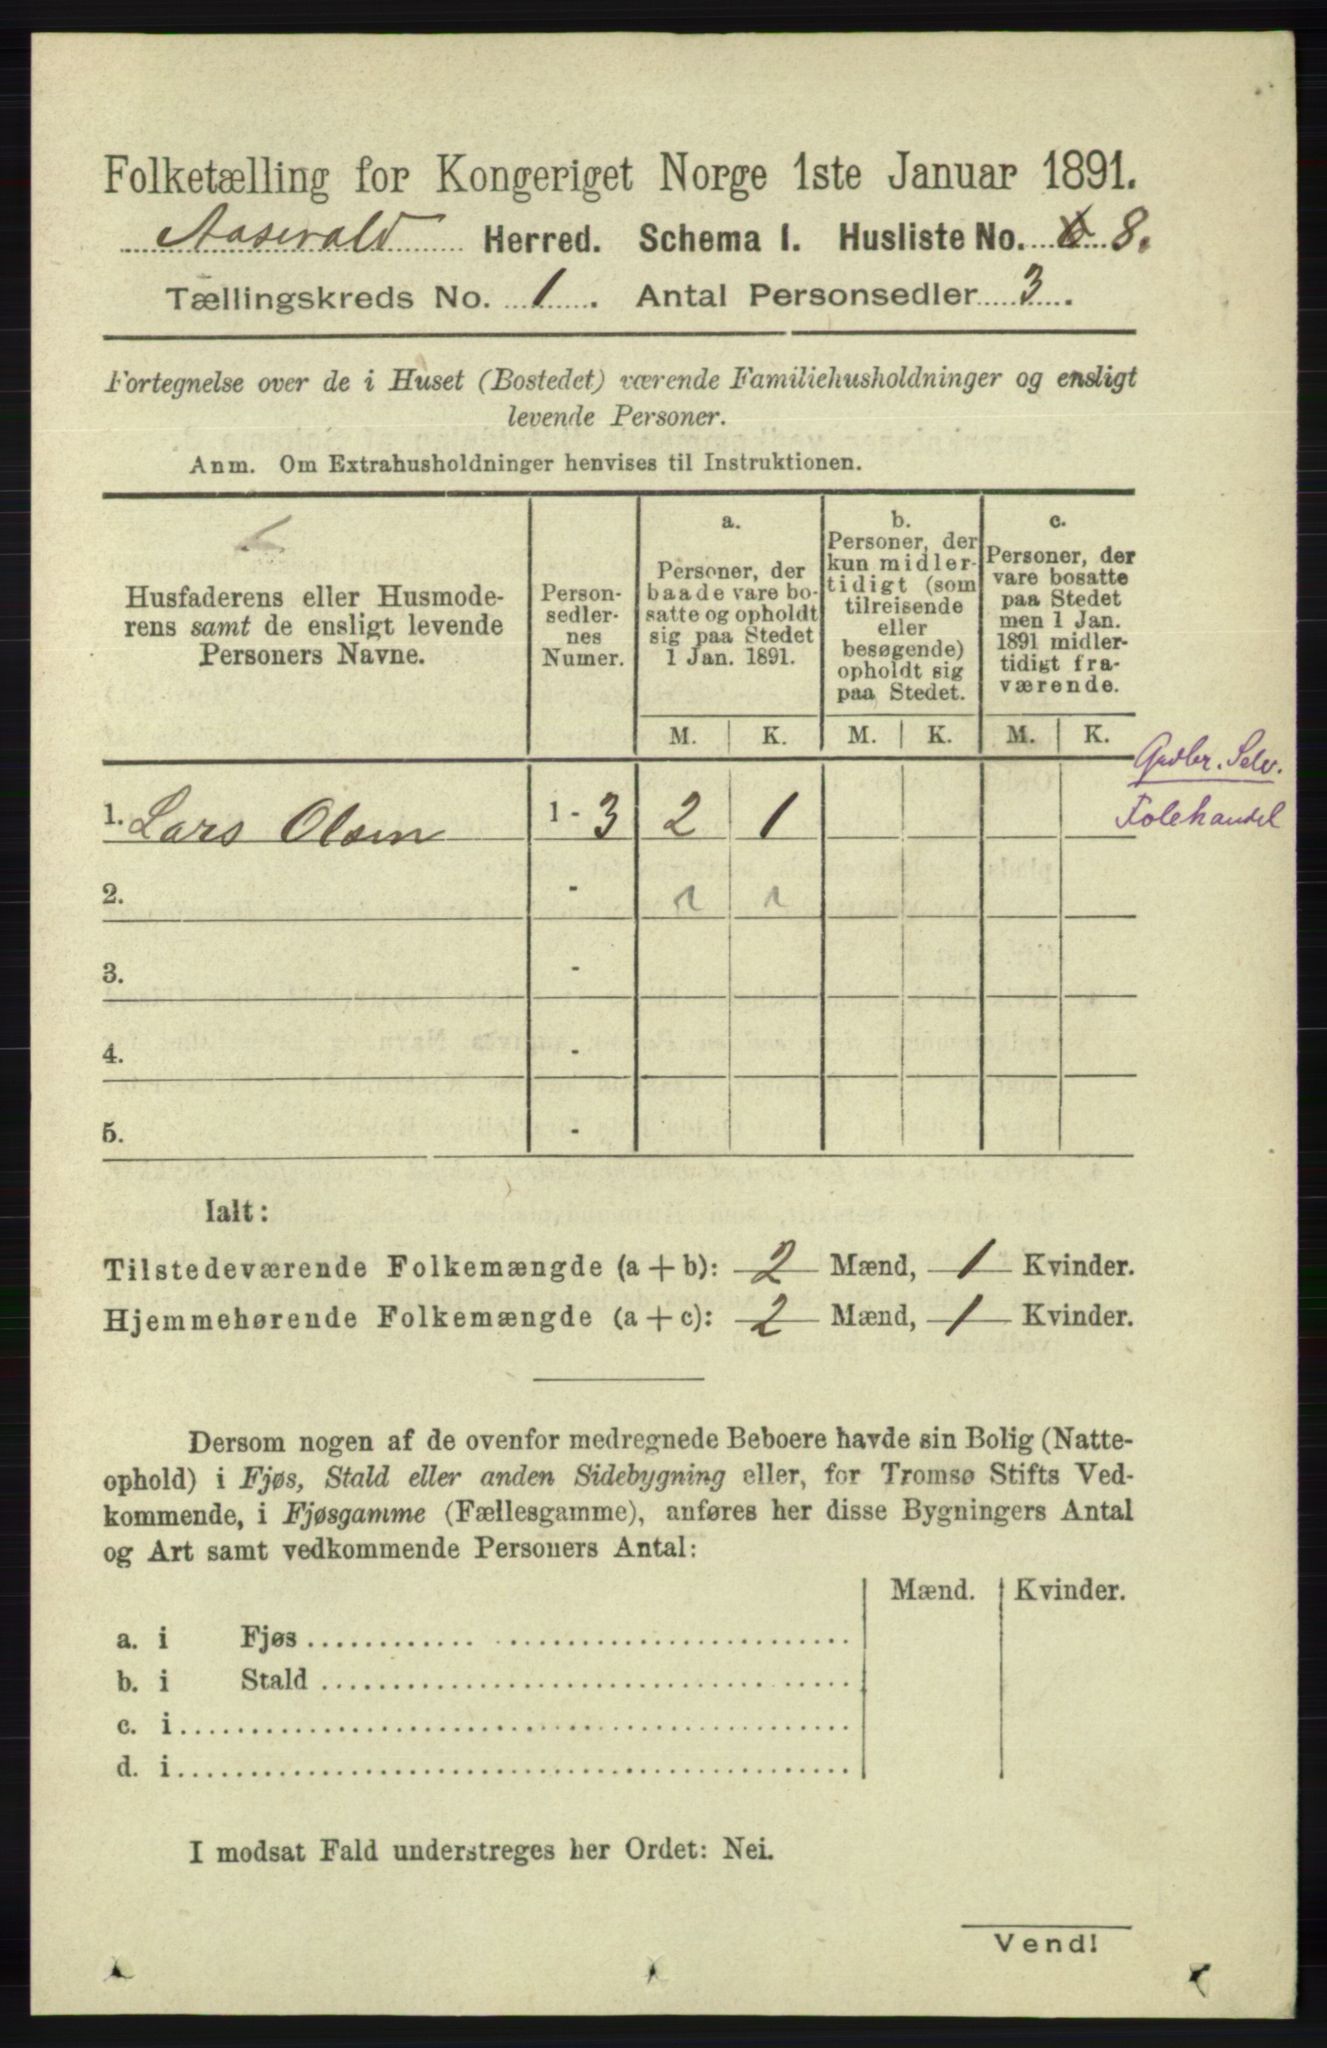 Folketælling for Kongeriget Norge 1ste Januar 1891.
Aaserald Herred. Schema I. Husliste No. 8.
Tællingskreds No. 1. Antal Personsedler 3.
Fortegnelse over de i Huset (Bostedet) værende Familiehusholdninger og ensligt
levende Personer.
Anm. Om Extrahusholdninger henvises til Instruktionen.
Husfaderens eller Husmode-
rens samt de ensligt levende
Personers Navne.
Person-
sedler-
nes
Numer.
a.
Personer, der
baade vare bo-
satte og opholdt
sig paa Stedet
1 Jan. 1891.
b.
Personer, der
kun midler-
tidigt (som
tilreisende
eller
besøgende)
opholdt sig
paa Stedet.
c.
Personer, der
vare bosatte
paa Stedet
men 1 Jan.
1891 midler-
tidigt fra-
værende.
M. K. M. K. M. K.
Gadbr. Selv.
Folehandel
1. Lars Olsen 1 - 3 2 1
2. - 1 1
3. -
4. -
5. -
Ialt:
Tilstedeværende Folkemængde (a + b): 2 Mænd, 1 Kvinder.
Hjemmehørende Folkemængde (a + c): 2 Mænd, 1 Kvinder.
Dersom nogen af de ovenfor medregnede Beboere havde sin Bolig (Natte-
ophold) i Fjøs, Stald eller anden Sidebygning eller, for Tromsø Stifts Ved-
kommende, i Fjøsgamme (Fællesgamme), anføres her disse Bygningers Antal
og Art samt vedkommende Personers Antal:
Mænd. Kvinder.
a. i Fjøs
b. i Stald
c. i
d. i
I modsat Fald understreges her Ordet: Nei.
Vend!